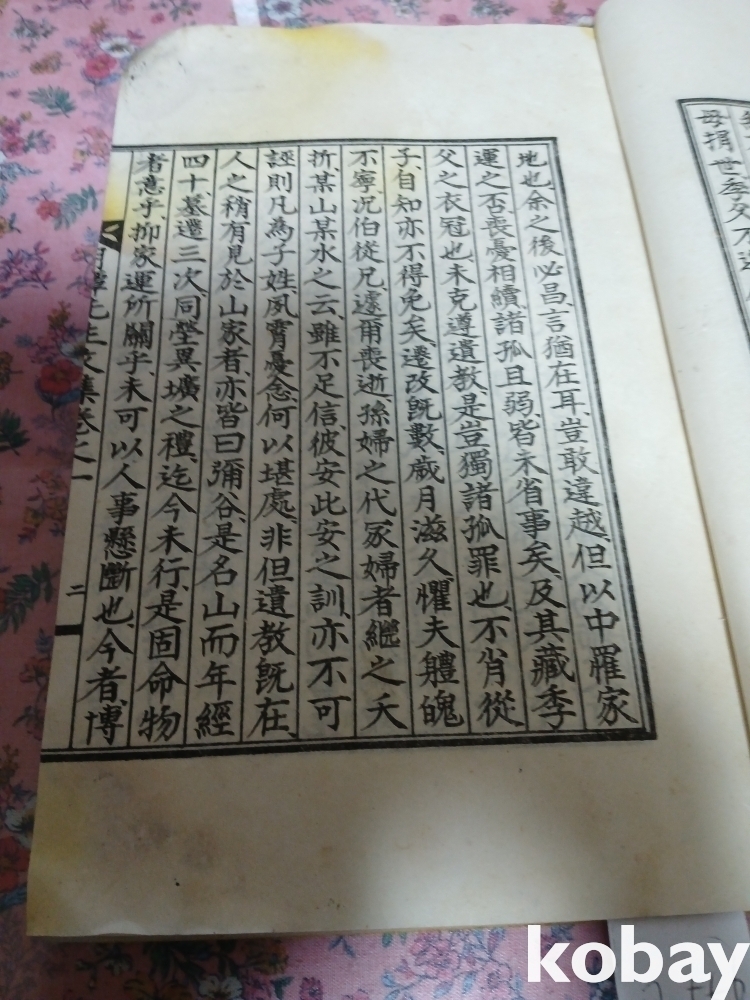 母捐世季父不
地也、余之後必昌、言猶在耳、豈敢違越、但以中罹家
運之否、喪憂相續、諸孤且弱、皆未省事矣、及其藏季
父之衣冠也、未克遵遺教、是豈獨諸孤罪也、不肖從
子、自知亦不得免矣、遷改旣數、歲月滋久、懼夫軆魄
不寧、况伯從兄、遽爾喪逝、孫婦之代冢婦者、繼之夭
折、某山某水之云、雖不足信、彼安此安之訓、亦不可
誣、則凡爲子姓、夙霄憂念、何以堪處、非但遺教旣在、
人之稍有見於山家者、亦皆曰彌谷、是名山而年經
四十、墓遷三次、同塋異壙之禮、迄今未行、是固命物
者意乎、抑家運所關乎、未可以人事懸斷也、今者、博
先生文集卷之一 二
kobay